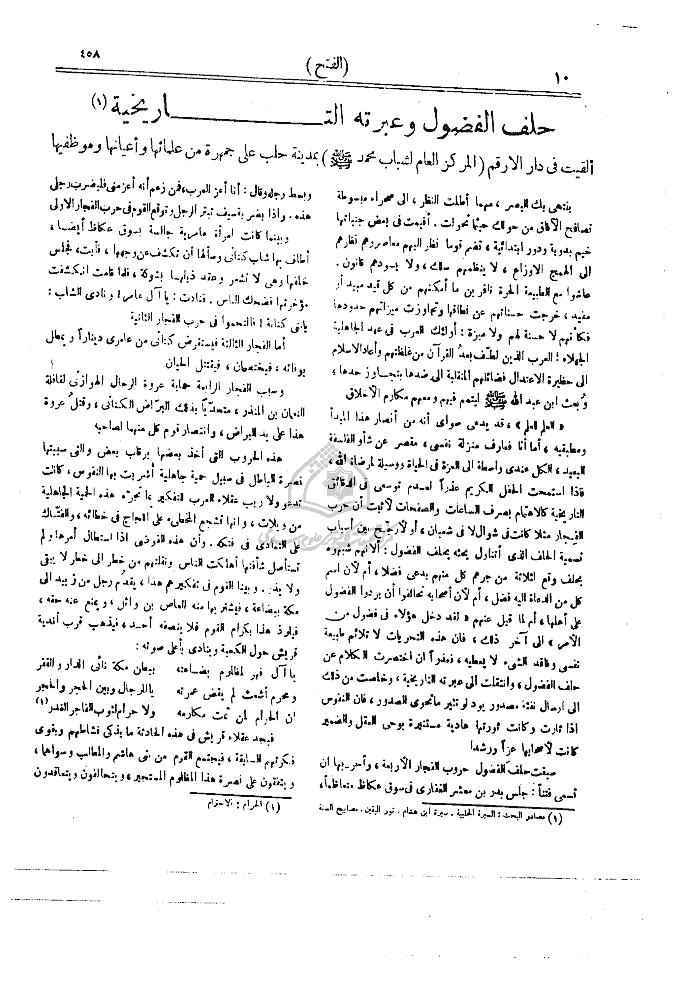 ٤٥٨
( الفتح )
١٠
حلف الفضول وعبرته التـــاريخية (١)
ألقيت في دار الارقم ( المركز العام لشباب محمد ﷺ ) بمدينة حلب على جمهرة من علمائها وأعيانها وموظفيها
ينتهى بك البصر ، مهما أطلت النظر ، الى صحراء مبسوطة
تصافح الآفاق من حولك حيثما تحولت . أقيمت فى بعض جنباتها
خيم بدوية ودور ابتدائية ، تضم قوما نظر اليهم معاصروهم نظرهم
الى الهمج الاوزاع ، لا ينظمهم سلك ، ولا يسودهم قانون .
عاشوا مع الطبيعة الحرة نافر بن ما أمكنهم من كل قيد مبيد أو
مفيد ، خرجت حسناتهم عن نطاقها وتجاوزت ميزاتهم حدودها
فكأنهم لا حسنة لهم ولا ميزة : أولئك العرب فى عهد الجاهلية
الجهلاء ؛ العرب الذين لطّف بعدُ القرآن من غلظتهم وأعاد الاسلام
الى حظيرة الاعتدال فضائلهم المنقلبة الى ضدها بتجاوز حدها ،
وبُعث ابن عبد الله ﷺ ليتمم فيهم ومعهم مكارم الأخلاق
« العلم للعلم » ، قد يدعى سواى أنه من أنصار هذا المبدأ
ومطبقيه ، أما أنا فعارف منزلة نفسى ، مقصر عن شأو الفلسفة
البعيد ، الكل عندى واسطة الى العزة فى الحياة ووسيلة لمرضاة الله ،
فاذا استمحت الحفل الكريم عذراً لعدم توسعى فى الدقائق
التاريخية كالاهتمام بصرف الساعات والصفحات لاثبت أن حرب
الفجار مثلا كانت فى شوال لا فى شعبان ، أو لأرجح بين أسباب
تسمية الحلف الذى أتناول بحثه بحلف الفضول : ألأنهم شبهوه
بحلف وقع لثلاثة من جرهم كل منهم يدعى فضلا ، أم لأن اسم
كل من الدعاة اليه فضل ، أم لأن أصحابه تحالفوا أن يردوا الفضول
على أهلها ، أم لما قيل عنهم « لقد دخل هؤلاء فى فضول من
الأمر » الى آخر ذلك ، فان هذه التحريات لا تلائم طبيعة
نفسى وفاقد الشىء لا يعطيه ، فعفراً ان اختصرت الكلام عن
حلف الفضول ، وانتقلت الى عبرته التاريخية ، وخلصت من ذلك
الى ارسال نفثة مصدور يود لو تثير ما تحوى الصدور ، فان النفوس
اذا ثارت وكانت ثورتها هادية مستنيرة بوحى العقل والضمير
كانت لأصحابها عزاً ورشدا
سبقت حلف الفضول حروب الفجار الأربعة ، وأحر بها ان
تسمى فتناً : جلس بدر بن معشر الغفارى فى سوق عكاظ متعاظماً ،
(١) مصادر البحث : السيرة الحلبية . سيرة ابن هشام . نور اليقين . مصابيح السنة
وبسط رجله وقال : أنا أعز العرب ، فمن زعم أنه أعز منى فليضرب رجلى
هذه . واذا بضربة سيف تبتر الرجل وتوقع القوم فى حرب الفجار الاولى
وبينما كانت امرأة عامرية جالسة بسوق عكاظ أيضا ،
أطاف بها شاب كنانى وسألها أن تكشف عن وجهها ، فأبت ، فجلس
خلفها وهى لا تشعر وعقد ذيلها بشوكة ، فلما قامت انكشفت
مؤخرتها فضحك الناس . فنادت : يا آل عامر ! ونادى الشاب :
يابنى كنانة ! فالتحموا فى حرب الفجار الثانية
أما الفجار الثالثة فيستقرض كنانى من عامرى ديناراً ويماطل
بوفائه ، فيختصمان ، فيقتتل الحيان
وسبب الفجار الرابعة حماية عروة الرحال الهوازنى لقافلة
النعمان بن المنذر ، متحديّاً بذلك البرّاض الكنانى ، وقتلُ عروة
هذا على يد البراض ، وانتصار قوم كل منهما لصاحبه
هذه الحروب التى أخذ بعضها برقاب بعض والتى سببتها
نصرة الباطل فى سبيل حمية جاهلية أشربت بها النفوس ، كانت
تدعو ولا ريب عقلاء العرب التفكير بما تجرّه هذه الحمية الجاهلية
من ويلات ، وانها تشجع المخطىء على اللجاج فى خطائه ، والفتّاك
على التمادى فى فتكه . وأن هذه الفوضى اذا استطال أمرها ولم
تستأصل شأفتها أهلكت الناس ونقلتهم من خطر الى خطر لا يبقى
ولا يذر . وبينا القوم فى تفكيرهم هذا ، يقدُم رجل من زبيد الى
مكة ببضاعة ، فيشتريها منه العاص بن وائل ، ويمنع عنه حقه ،
فيلوذ هذا بكرام القوم فلا ينصفه أحد ، فيذهب قرب أندية
قريش حول الكعبة وينادى بأعلى صوته :
يا آل فهر لمظلوم بضاعته  ببطن مكة نائى الدار والقفر
ومحرم أشعث لم يقض عمرته  ياللرجال وبين الحجر والحجر
ان الحرام لمن تمت مكارمه  ولا حرام لثوب الفاجر الغدر (١)
فيجد عقلاء قريش فى هذه الحادثة ما يذكى نشاطهم ويقوى
فكرتهم السابقة ، فيجتمع القوم من بنى هاشم والمطالب وسواهما ،
ويتفقون على نصرة هذا المظلوم المستجير ، ويتحالفون ويتعاقدون
(١) الحرام : الاحترام